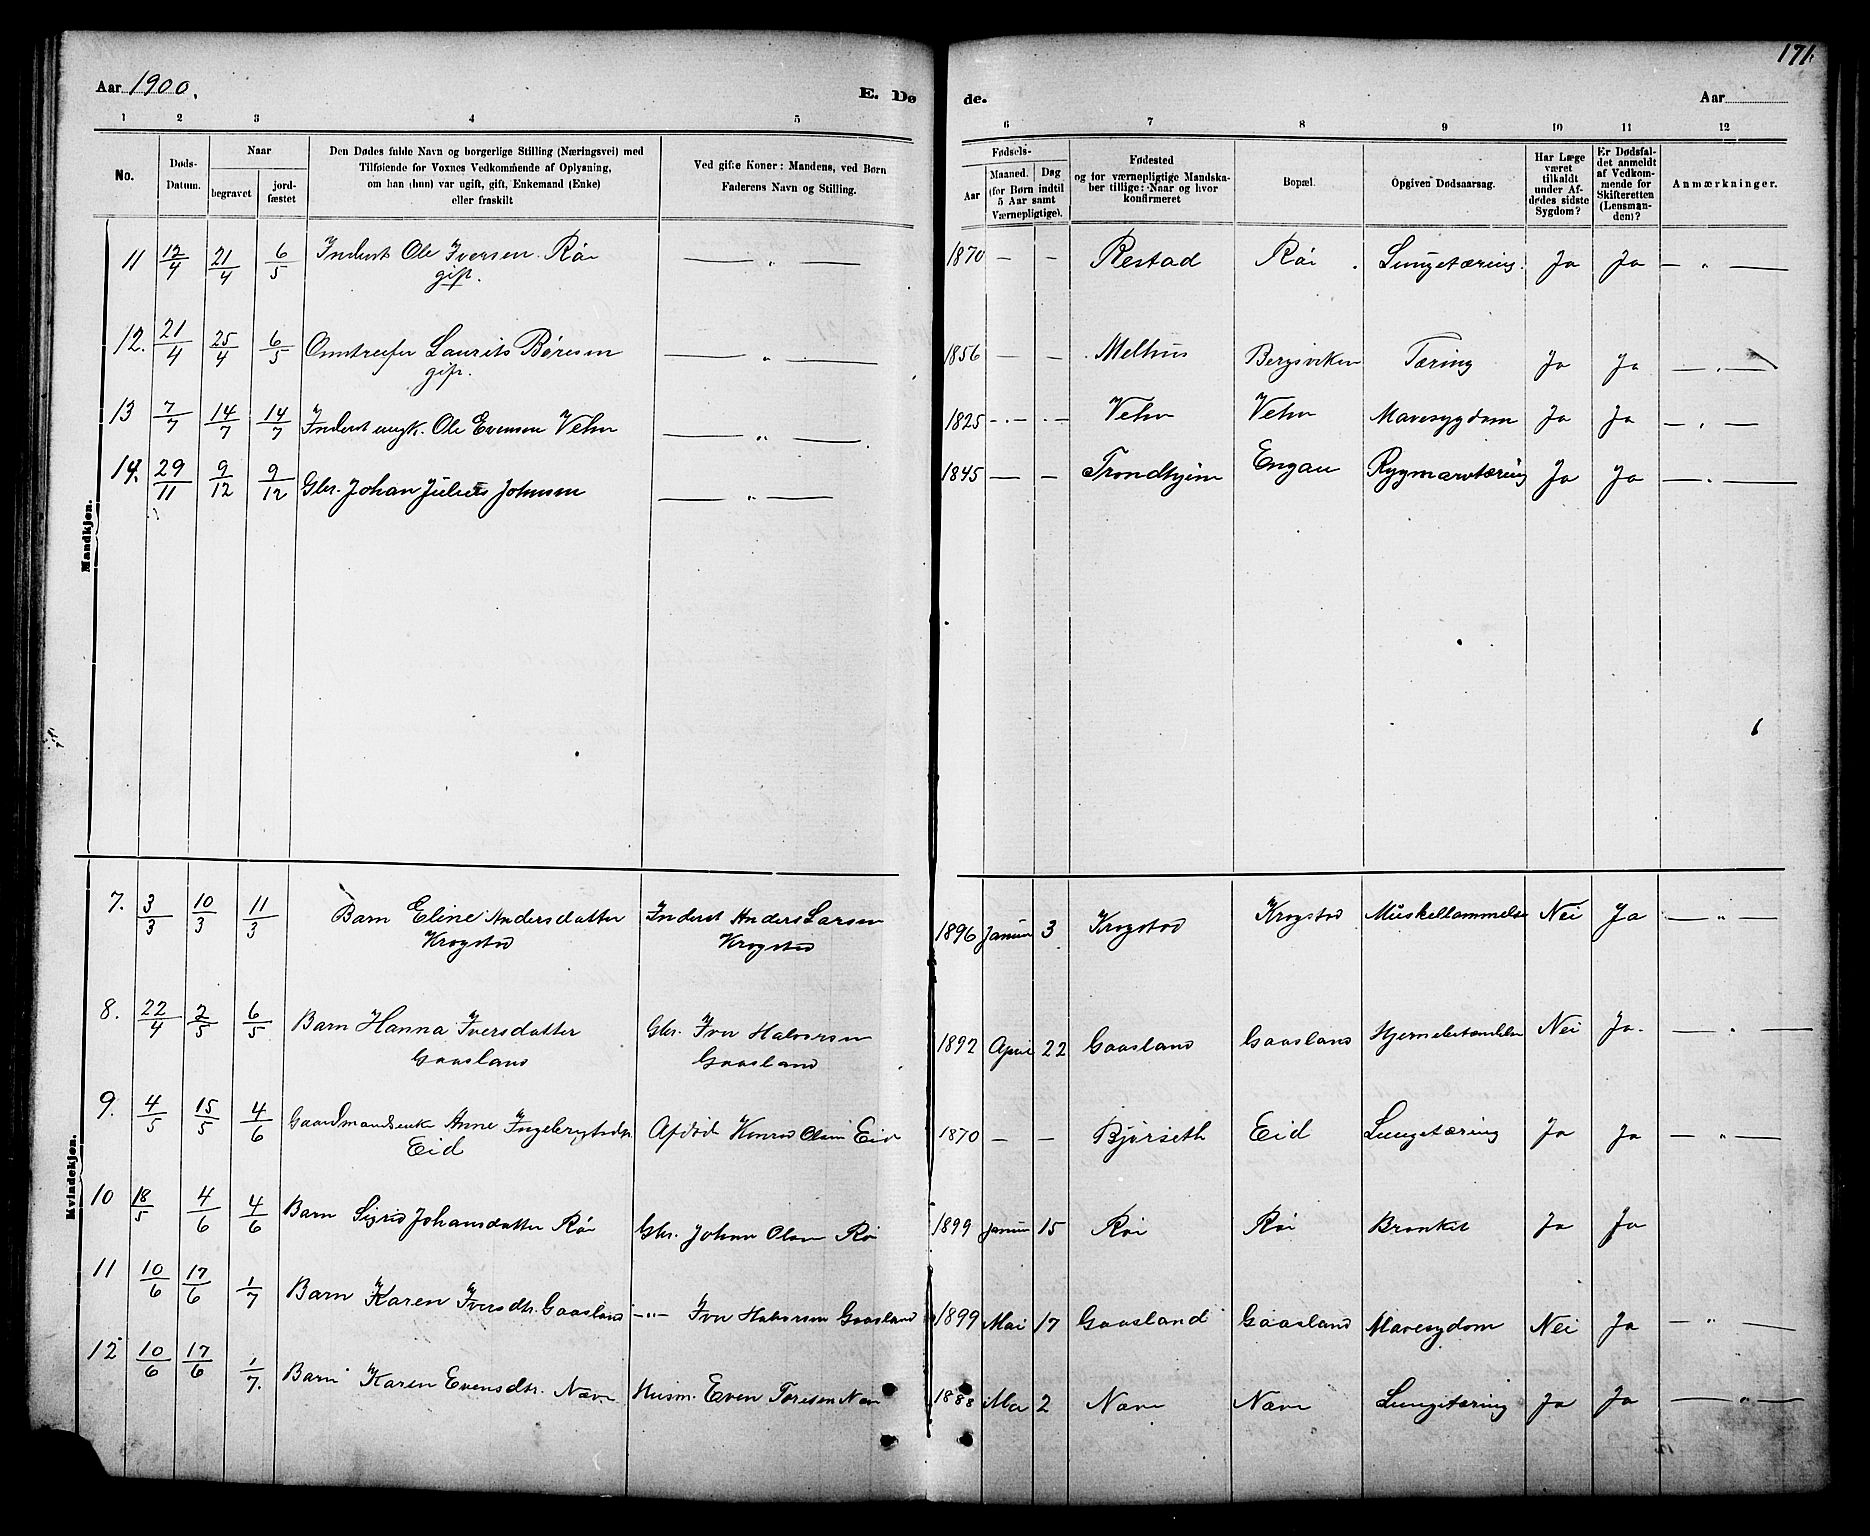 171.
Aar 1900.
E. Dø
de.
Aar
1 2 3 4 5 6 7 8 9 10 11 12
No.
Døds-Datum.
Naar
begravet
jordfæstet
Den Dødes fulde Navn og borgerlige Stilling (Næringsvei) med
Tilføiende for Voxnes Vedkommende af Oplysning,
om han (hun) var ugift, gift, Enkemand (Enke)
eller fraskilt
Ved gifte Koner: Mandens, ved Børn
Faderens Navn og Stilling.
Fødsels-
Aar
Maaned. Dag
(for Børn indtil
5 Aar samt
Værnepligtige).
Fødested
og for værnepligtige Mandska-
ber tillige: Naar og hvor
konfirmeret
Bopæl.
Opgiven Dødsaarsag.
Har Læge
været
tilkaldt
under Af-
dødes sidste
Sygdom?
Er Dødsfal-
det anmeldt
af Vedkom-
mende for
Skifteretten
(Lensman-
den)?
Anmærkninger.
Mandkjøn.
11 12/4 21/4 6/5 Inderst Ole Iversen Røi — " — 1870 — — Restad Røi. Lungetæring. Ja Ja — " —
gift.
12. 21/4 25/4 6/5 Laurits Børesen — " — 1856 — — Melhus Bergsviken Tæring Ja Ja — " —
gift.
13 7/7 14/7 14/7 Inderst ungk. Ole Evensen Vehn — " — 1825 — — Vehn Vehn Mavesygdom Ja Ja — " —
14. 29/11 9/12 9/12 Gbr. Johan Julius Johnsen — " — 1845 — — Trondhjem Engan Rygmarvtæring Ja Ja — " —
Kvindekjøn.
7. 3/3 10/3 11/3 Barn Eline Andersdatter Inderst Anders Larsen 1896 Januar 3 Krogstad Krogstad Muskellammelse Nei Ja — " —
Krogstad Krogstad
8. 22/4 2/5 6/5 Barn Hanna Iversdatter Gbr. Iver Halvorsen 1892 April 22 Gaasland Gaasland Hjernebetændelse Nei Ja. — " —
Gaasland Gaasland
9. 4/5 15/5 4/6 Gaardmandsenke Anne Ingebrigtsdr. Afdød Konrad Olsen Eid 1870 — — Bjørseth Eid Lungetæring Ja Ja — " —
Eid
10 18/5 4/6 4/6 Barn Sigrid Johansdatter Røi Gbr. Johan Olsen Røi 1899 Januar 15 Røi Røi Bronkit Ja Ja
11 10/6 17/6 1/7 Barn Karen Iversdtr. Gaasland — " — Iver Halvorsen Gaasland 1899 Mai 17 Gaasland Gaasland Mavesygdom Nei Ja — " —
12 10/6 17/6 1/7. Barn Karen Evensdtr. Næve Husm. Even Toresen Næve 1888 Mai 2 Næve Næve Lungetæring Ja Ja — " —